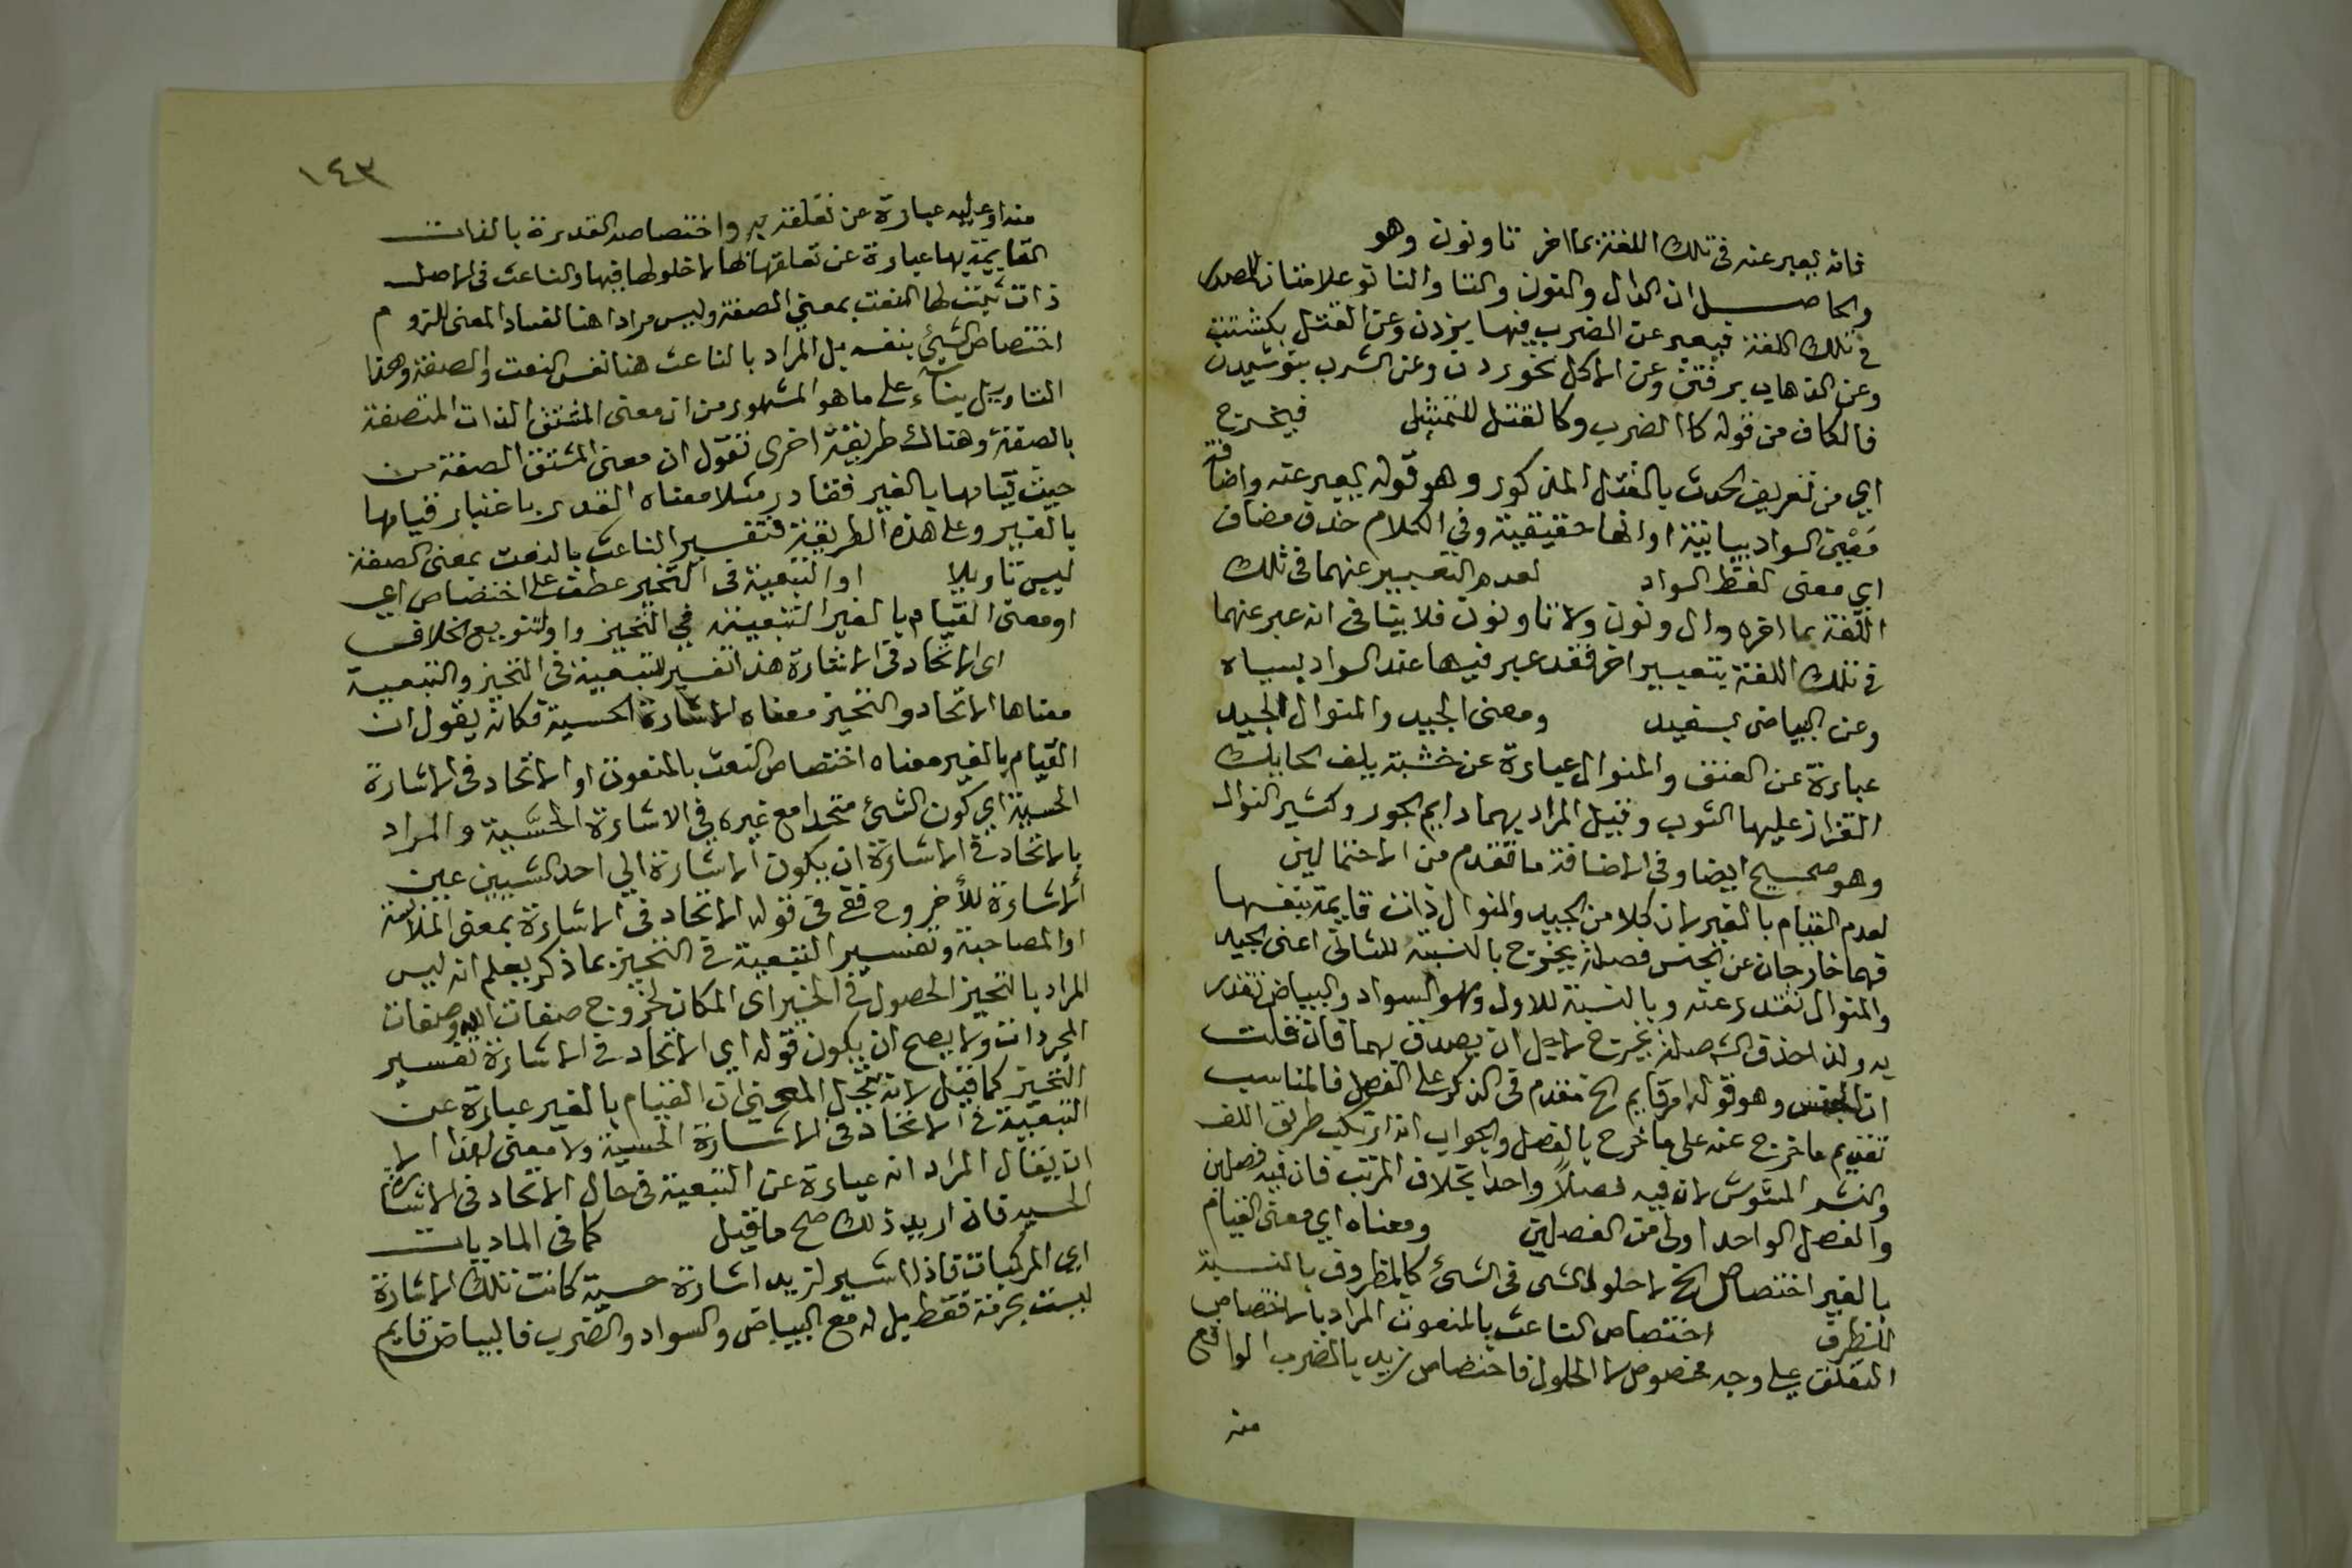 فانه يعبر عنه فى تلك اللغة بما اخر تا ونون وهو
والحاصل ان الدال والنون والتا والنا تو علامتان للمصدر
فى تلك اللغة فيعبر عن الضرب فيها بزدن وعن القتل بكشتن
وعن الذهاب برفتن وعن الاكل بخوردن وعن الشرب بنوشيدن
فالكاف من قوله كالضرب وكالقتل للتمثيل فيخرج
اي من تعريف الحدث بالقتل المذكور وهو قوله يعبر عنه واضافة
معنى السواد بيانية او انها حقيقية وفى الكلام حذف مضاف
اي معنى لفظ السواد لعدم التعبير عنهما فى تلك
اللغة بما اخره دال ونون ولا تا ونون فلا ينافى انه عبر عنهما
فى تلك اللغة بتعبير اخر فقد عبر فيها عند السواد بسياه
وعن البياض بسفيد ومعنى الجيد والمنوال الجيد
عبارة عن العنق والمنوال عبارة عن خشبة يلف الحايك
القزاز عليها الثوب وقيل المراد بهما دايم الجود وكثير النوال
وهو صحيح ايضا وفى الاضافة ما تقدم من الاحتمالين
لعدم القيام بالغير لان كلا من الجيد والمنوال ذات قايمة بنفسها
فهما خارجان عن الجنس فصلة يخرج بالنسبة للثانى اعنى الجيد
والمنوال تقدر عنه وبالنسبة للاول وهو السواد والبياض تقدر
به ولذا حذف الش صلة يخرج لاجل ان يصدق بهما فان قلت
ان الجنس وهو قوله امر قايم الخ مقدم فى الذكر على الفصل فالمناسب
تقديم ما خرج عنه على ما خرج بالفصل والجواب انه ارتكب طريق اللف
والنشر المشوش لان فيه فصلاً واحدا بخلاف المرتب فان فيه فصلين
والفصل الواحد اولى من الفصلين ومعناه اي معنى القيام
بالغير اختصاص الخ لا حلول الشى فى الشئ كالمظروف بالنسبة
للظرف اختصاص الناعت بالمنعوت المراد بالاختصاص
التعلق على وجه مخصوص لا الحلول فاختصاص زيد بالضرب الواقع
منه
١٤٣
منه او عليه عبارة عن تعلقه به واختصاص القدرة بالذات
القايمة بها عبارة عن تعلقها بها لا حلولها فيها والناعت فى الاصل
ذات ثبت لها النعت بمعنى الصفة وليس مرادا هنا لفساد المعنى للزوم
اختصاص الشئ بنفسه بل المراد بالناعت هنا نفس النعت والصفة وهذا
التاويل بناء على ما هو المشهور من ان معنى المشتق الذات المتصفة
بالصفة وهناك طريقة اخرى تقول ان معنى المشتق الصفة من
حيث قيامها بالغير فقادر مثلا معناه القدر باعتبار قيامها
بالغير وعلى هذه الطريقة فتفسير الناعت بالنعت بمعنى الصفة
ليس تاويلا او التبعية فى التحيز عطف على اختصاص اي
او معنى القيام بالغير التبعية فى التحيز واو لتنويع الخلاف
اى الاتحاد فى الاشارة هذا تفسير للتبعية فى التحيز والتبعية
معناها الاتحاد والتحيز معناه الاشارة الحسية فكانه يقول ان
القيام بالغير معناه اختصاص النعت بالمنعوت او الاتحاد فى الاشارة
الحسية اي كون الشئ متحدا مع غيره في الاشارة الحسية والمراد
بالاتحاد فى الاشارة ان يكون الاشارة الي احد الشيين عين
الاشارة للأخر وح فقى فى قوله الاتحاد فى الاشارة بمعنى الملابسة
او المصاحبة وتفسير التبعية فى التحيز بما ذكر يعلم انه ليس
المراد بالتحيز الحصول فى الحيز اى المكان لخروج صفات الله وصفات
المجردات ولا يصح ان يكون قوله اي الاتحاد فى الاشارة تفسير
التحيز كما قيل لانه ينحل المعنى ان القيام بالغير عبارة عن
التبعية فى الاتحاد فى الاشارة الحسية ولا معنى لهذا الا
ان يقال المراد انه عبارة عن التبعية فى حال الاتحاد فى الاشارة
الحسيه فان اريد ذلك صح ما قيل كما فى الماديات
اي المركبات فاذا اشير لزيد اشارة حسية كانت تلك الاشارة
ليست لجرمه فقط بل له مع البياض والسواد والضرب فالبياض قايم